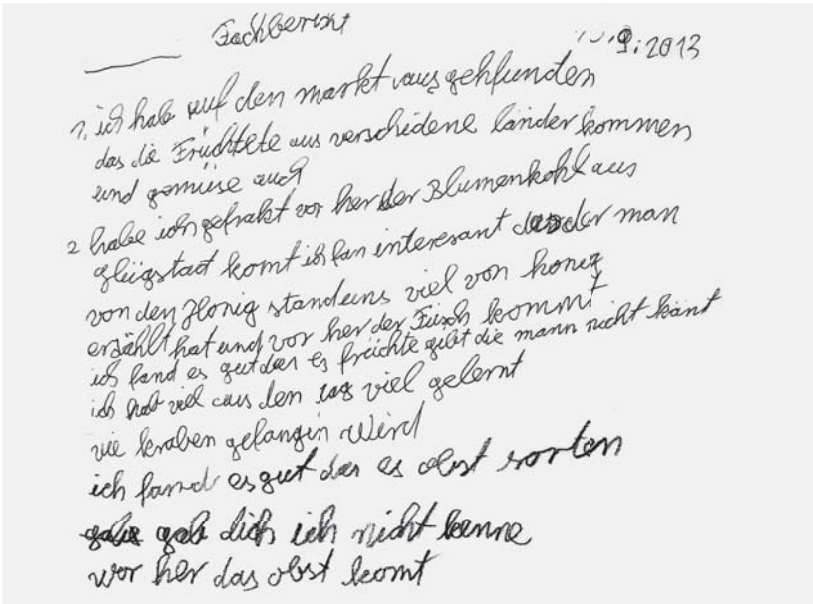 Fachbericht
9.2013
1. ich habe auf den markt aus gehfunden
das die Früchtete aus verschidene länder kommen
und gemüse auch
2 habe ich gefrakt vor her der Blumenkohl aus
glügstadt komt ich fan interesant das der man
von den Honig stand uns viel von honig
erzählt hat und vor her der Fisch kommt
ich fand es gut das es früchte gibt die mann nicht känt
ich hab viel aus den tag viel gelernt
vie kraben gefangin wird
ich fand es gut das es obst sorten
gab dich ich nicht kenne
wor her das obst komt